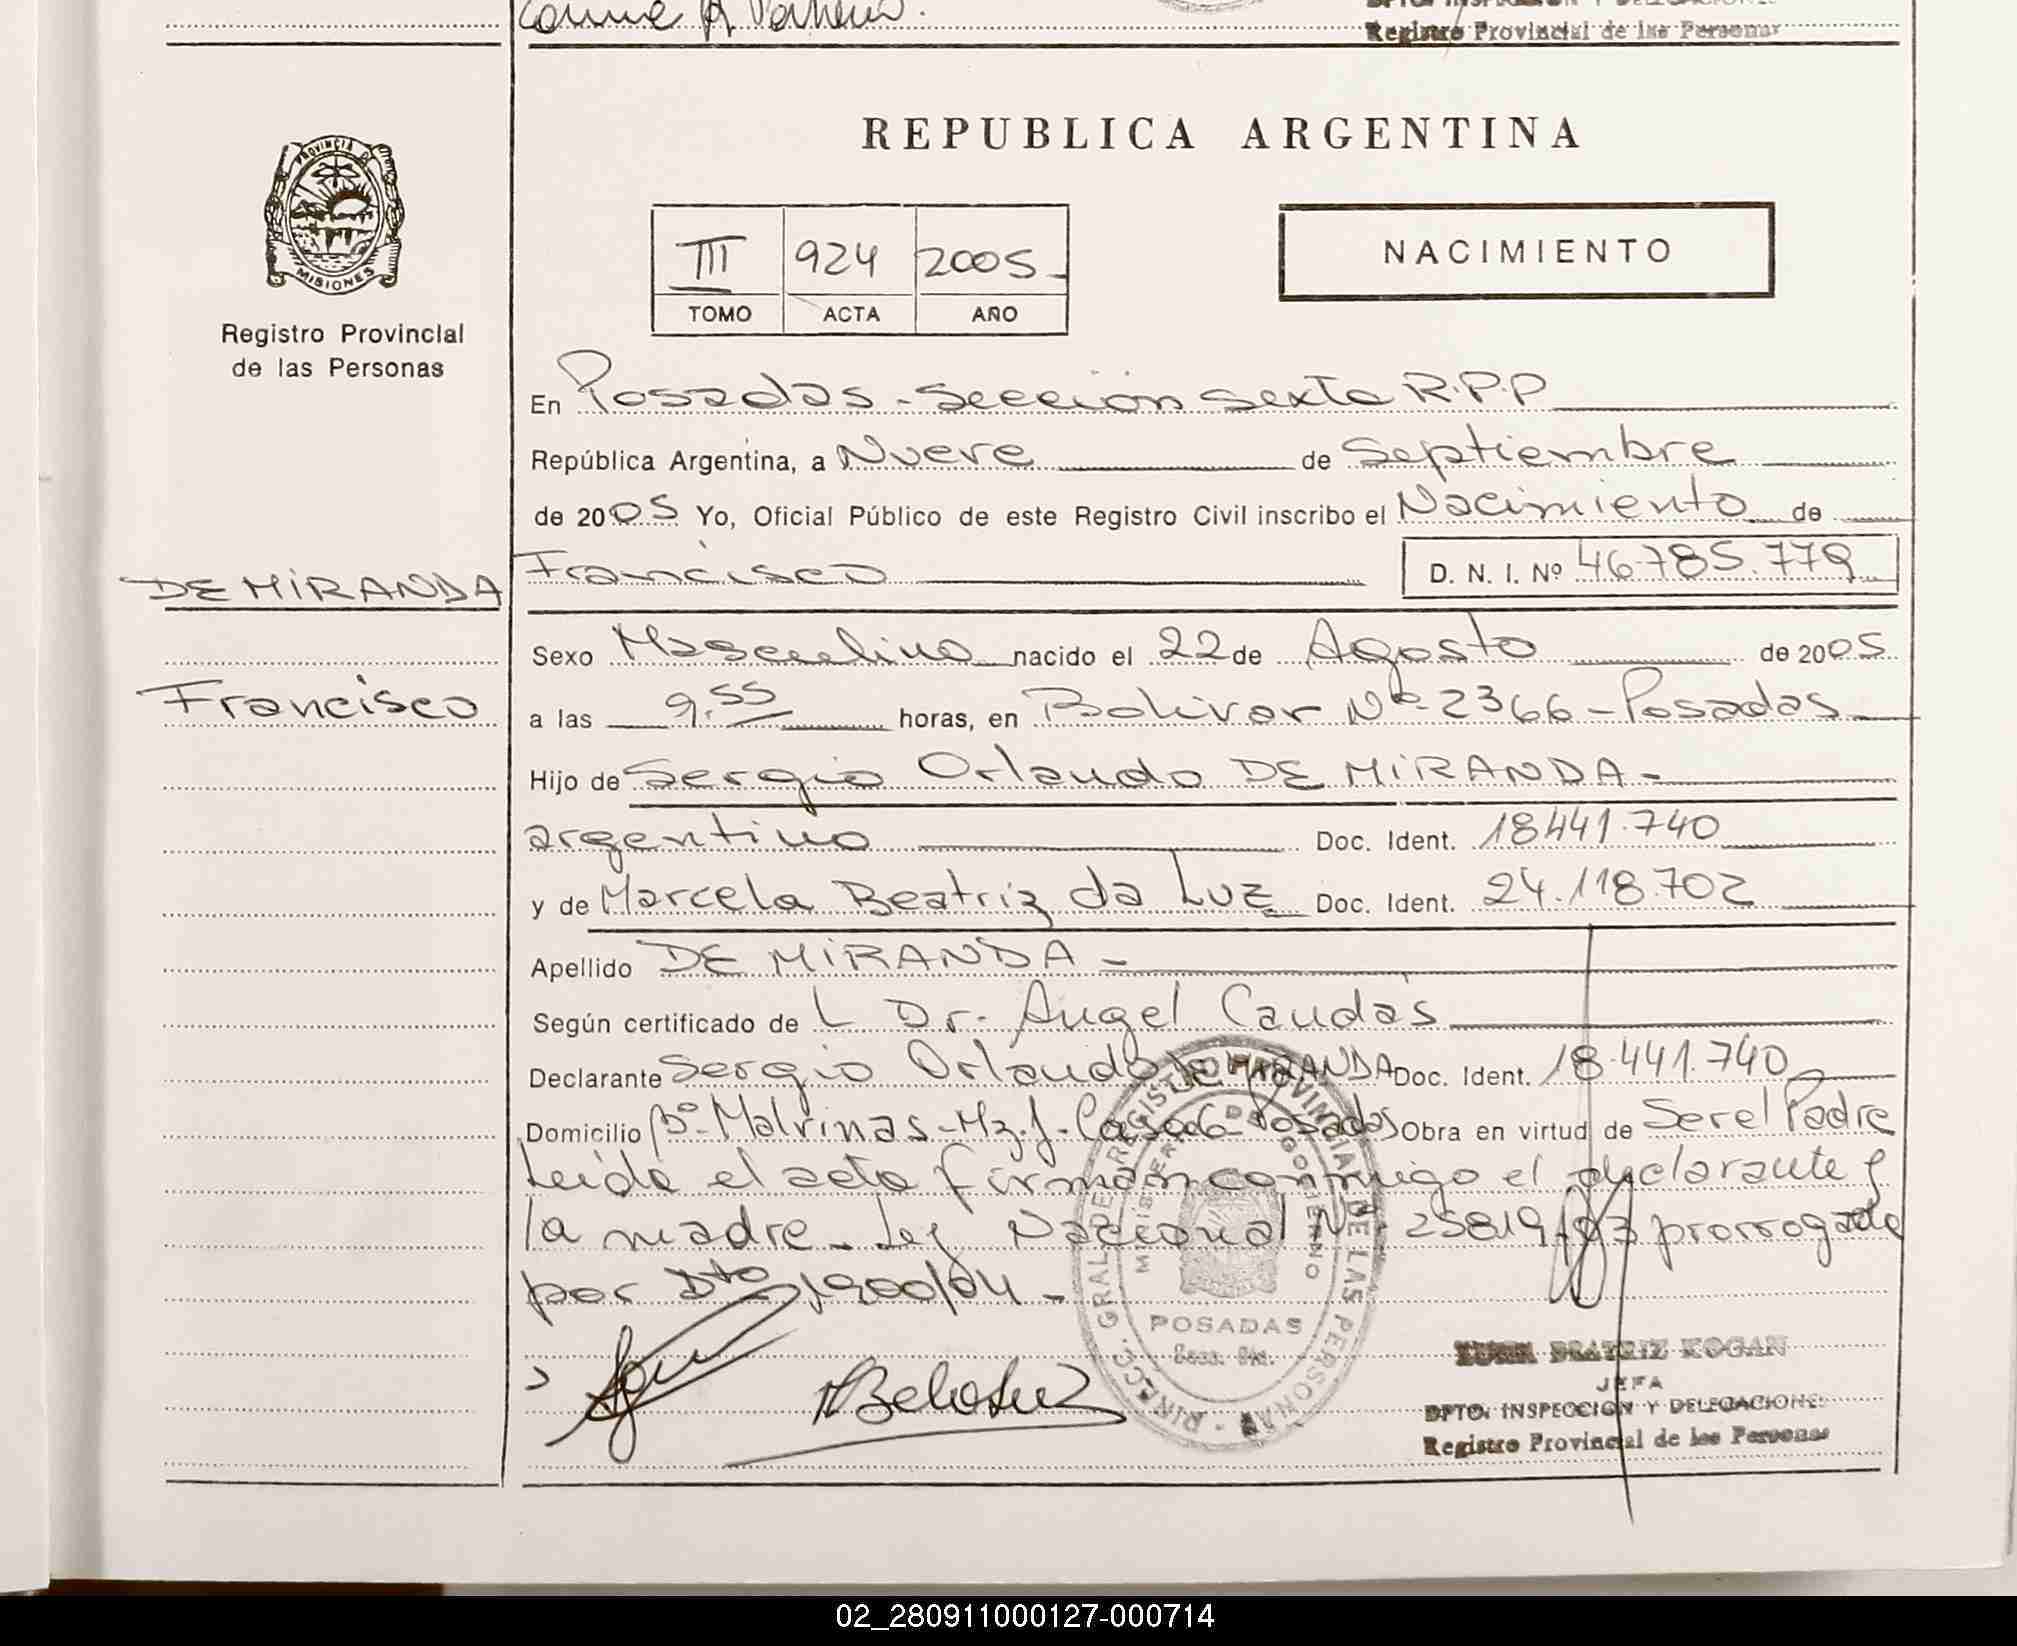 Registro Provincial de las Personas
REPUBLICA ARGENTINA
PROVINCIA DE
MISIONES
Registro Provincial
de las Personas
III 924 2005
TOMO ACTA AÑO
NACIMIENTO
En Posadas - Sección Sexta R.P.P
República Argentina, a Nueve de Septiembre
de 2005 Yo, Oficial Público de este Registro Civil inscribo el Nacimiento de
DE MIRANDA Francisco D. N. I. Nº 46.785.779
Sexo Masculino nacido el 22 de Agosto de 2005
Francisco
a las 9.55 horas, en Bolivar Nº 2366 - Posadas
Hijo de Sergio Orlando DE MIRANDA -
argentino Doc. Ident. 18441.740
y de Marcela Beatriz da Luz Doc. Ident. 24.118.702
Apellido DE MIRANDA -
Según certificado de L Dr. Angel Caudas
Declarante Sergio Orlando DE MIRANDA Doc. Ident. 18.441.740
Domicilio Bº Malvinas - Mz. J - Casa 6 - Posadas Obra en virtud de Ser el Padre
Leída el acta firman conmigo el declarante y
la madre - Ley Nacional Nº 25819/03 prorrogada
por Dto 1900/04 -
DIRECC. GRAL. DE REGISTRO PROVINCIAL DE LAS PERSONAS
MINISTERIO DE GOBIERNO
POSADAS
BEATRIZ KOGAN
JEFA
DPTO. INSPECCION Y DELEGACIONES
Registro Provincial de las Personas
02_280911000127-000714